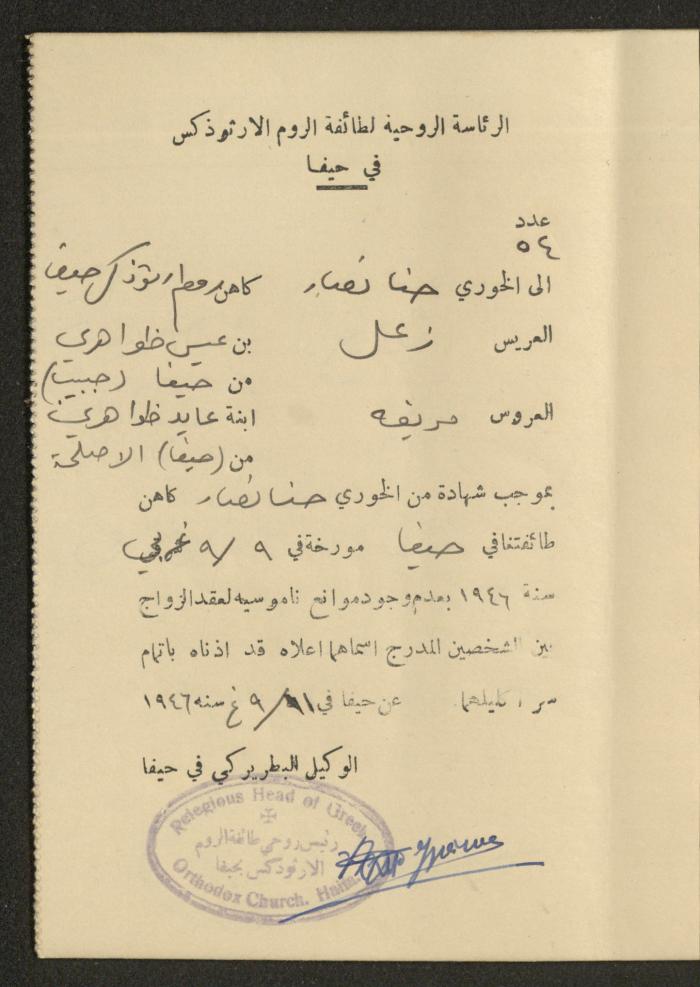 الرئاسة الروحية لطائفة الروم الارثوذكس
في حيفا
عدد
٥٤
الى الخوري حنا نصار كاهن روم ارثوذكس حيفا
العريس زعل بن عيسى ظواهري
من حيفا
العروس ابنة عايد ظواهري
من (حيفا) الاصلية
بموجب شهادة من الخوري حنا نصار كاهن
طائفتنا في حيفا مورخة في ٩ / ٩ غربي
سنة ١٩٤٦ بعدم وجود موانع ناموسيه لعقد الزواج
بين الشخصين المدرج اسماهما اعلاه قد اذناه باتمام
سر اكليلهما. عن حيفا في / ٩ غ سنه ١٩٤٦
الوكيل البطريركي في حيفا
Relegious Head of Greek
رئيس روحي طائفة الروم
الارثوذكس بحيفا
Orthodox Church. Haifa.